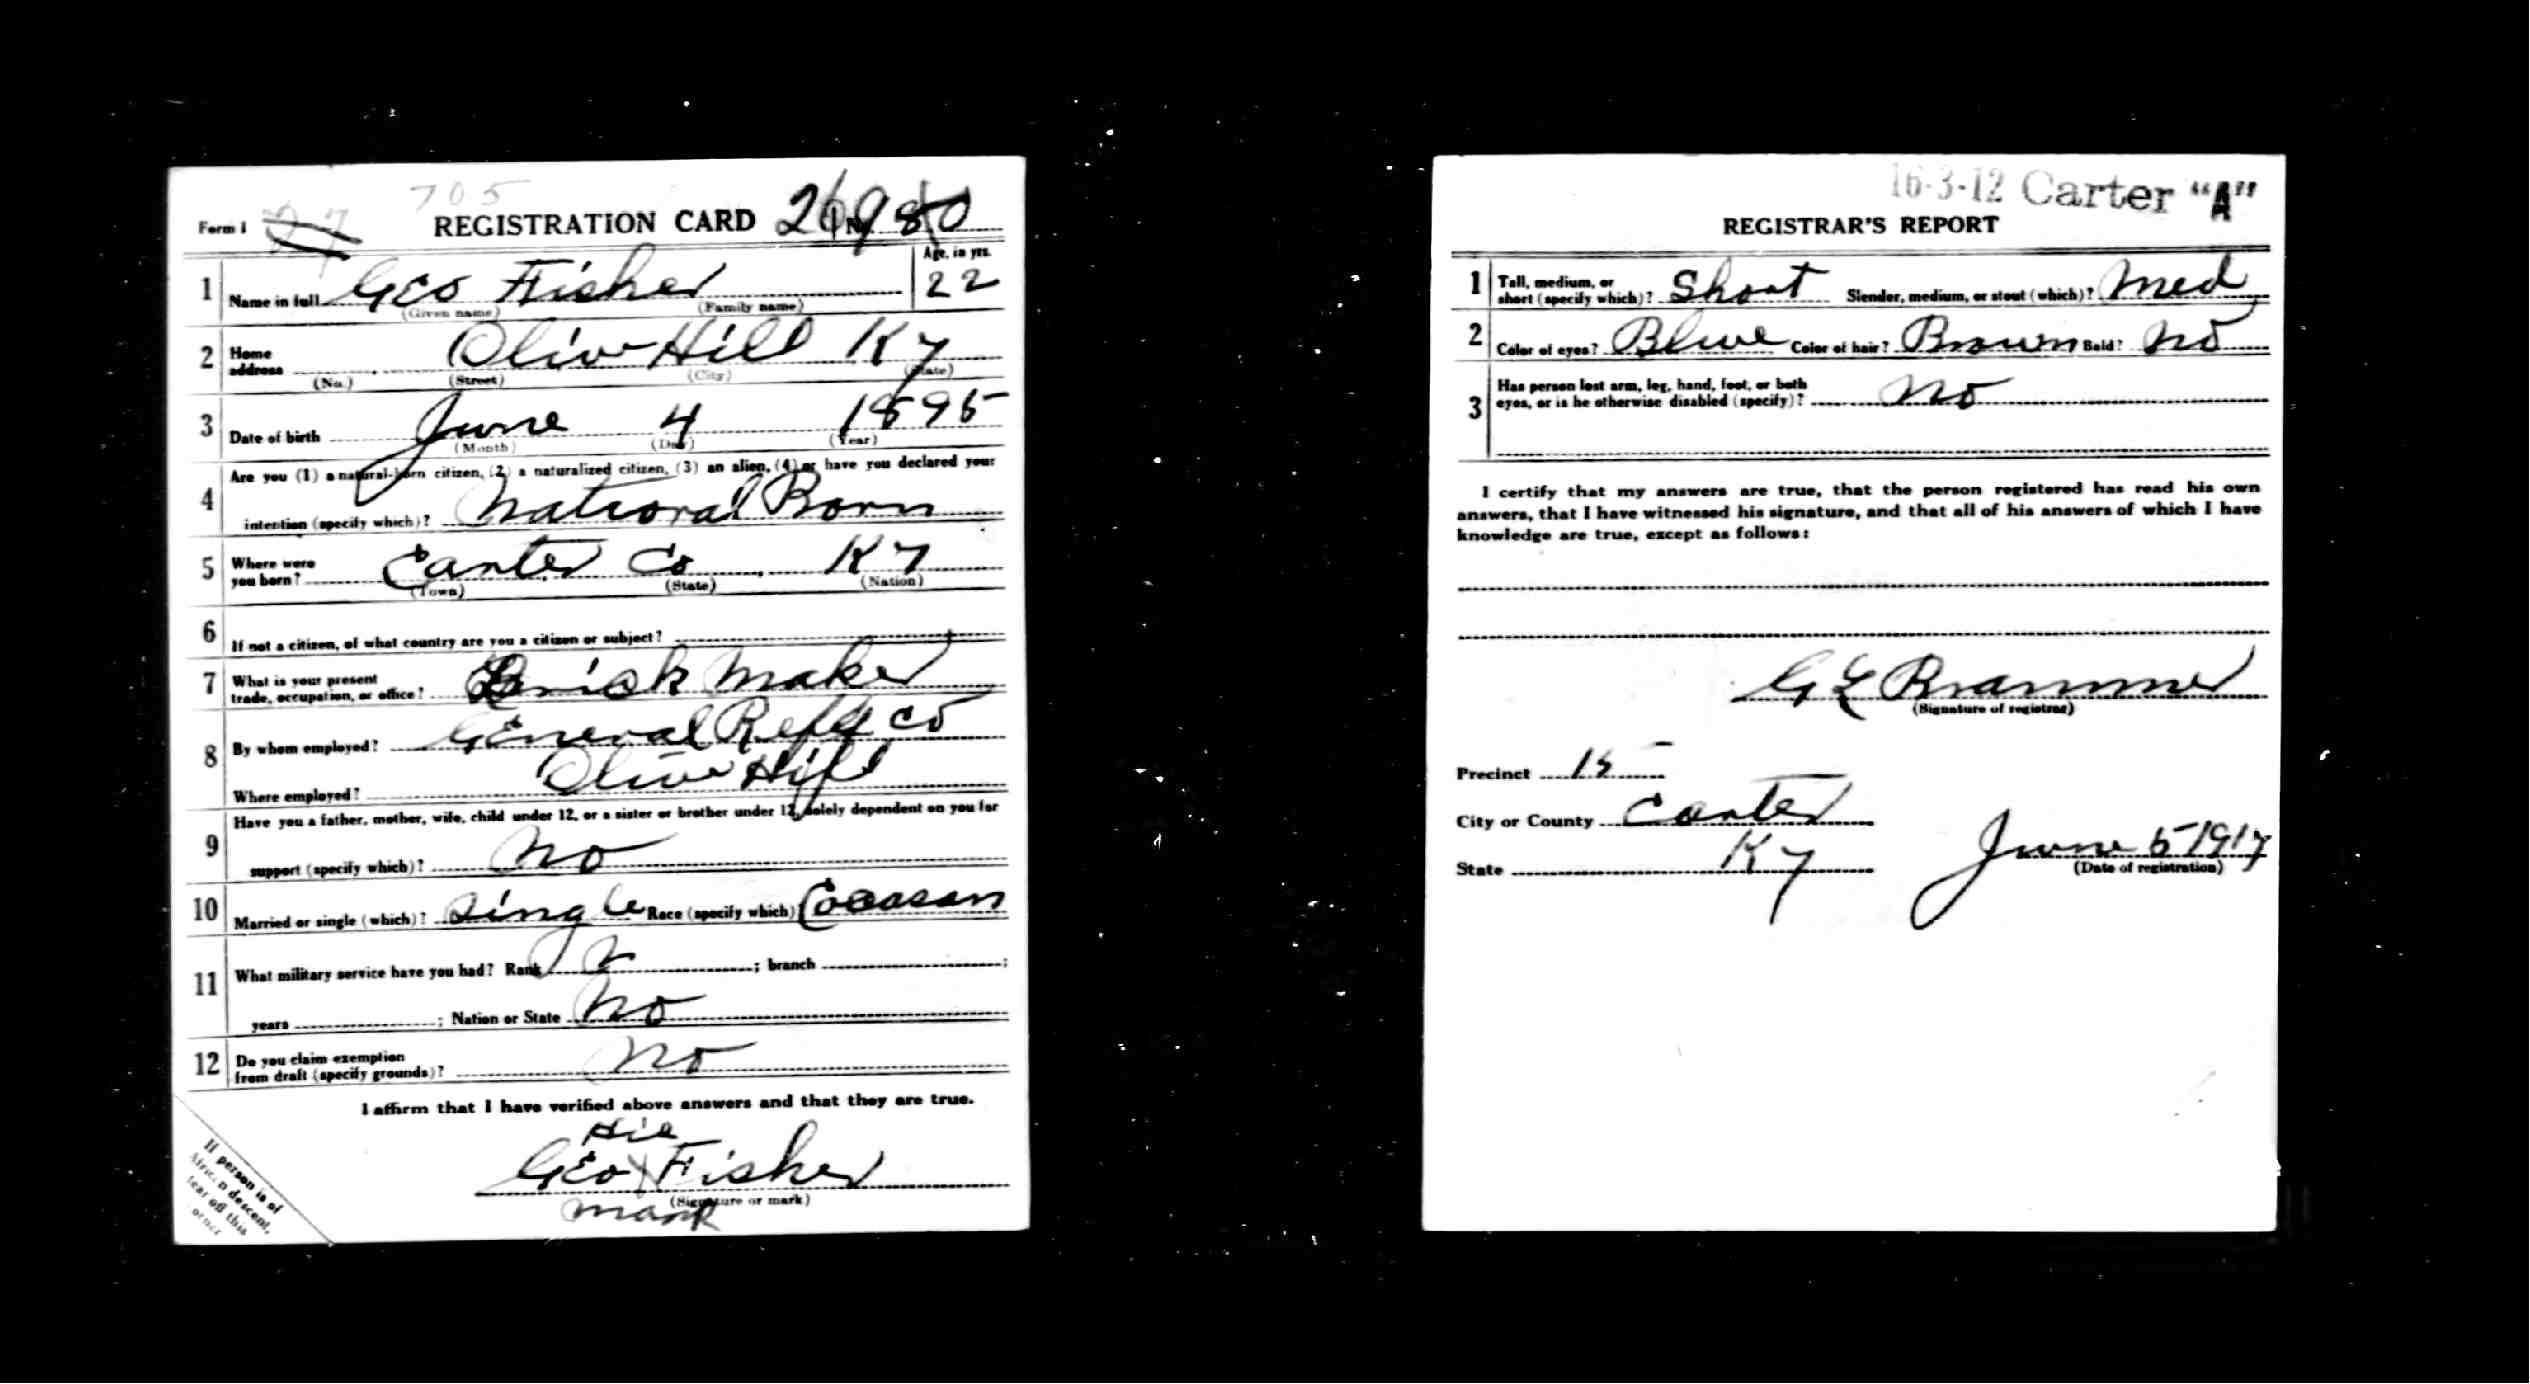 705
Form 1 REGISTRATION CARD No.
Age, in yrs.
1 Name in full Geo Fisher 22
(Given name) (Family name)
2 Home address Olive Hill Ky
(No.) (Street) (City) (State)
3 Date of birth June 4 1895
(Month) (Day) (Year)
Are you (1) a natural-born citizen, (2) a naturalized citizen, (3) an alien, (4) or have you declared your
4 intention (specify which)? National Born
5 Where were you born? Carter Co Ky
(Town) (State) (Nation)
6 If not a citizen, of what country are you a citizen or subject?
7 What is your present trade, occupation, or office? Brick Maker
8 By whom employed? General Refy Co
Where employed? Olive Hill
Have you a father, mother, wife, child under 12, or a sister or brother under 12, solely dependent on you for
9 support (specify which)? No
10 Married or single (which)? Single Race (specify which)? Cocasan
11 What military service have you had? Rank ; branch ;
years ; Nation or State No
12 Do you claim exemption from draft (specify grounds)? No
I affirm that I have verified above answers and that they are true.
His
Geo X Fisher
(Signature or mark)
mark
If person is of
African descent,
tear off this
corner
16-3-12 Carter "A"
REGISTRAR'S REPORT
1 Tall, medium, or short (specify which)? Short Slender, medium, or stout (which)? Med
2 Color of eyes? Blue Color of hair? Brown Bald? No
3 Has person lost arm, leg, hand, foot, or both
eyes, or is he otherwise disabled (specify)? No
I certify that my answers are true, that the person registered has read his own
answers, that I have witnessed his signature, and that all of his answers of which I have
knowledge are true, except as follows:
G E Brammer
(Signature of registrar)
Precinct 15
City or County Carter
State Ky June 5 1917
(Date of registration)